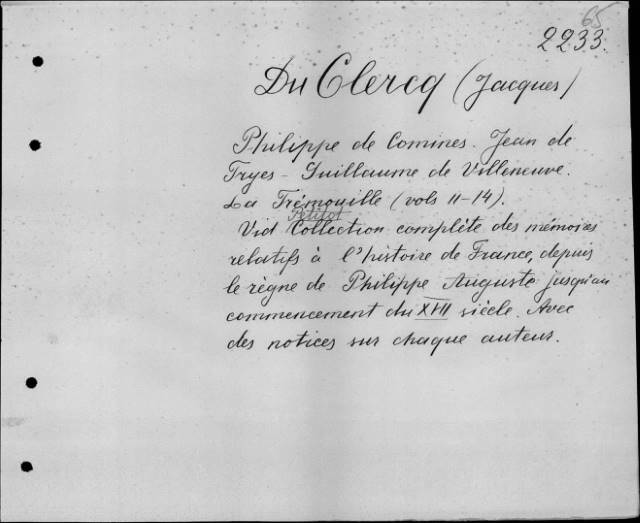 65
2233.
Du Clercq (Jacques)
Philippe de Comines. Jean de
Tryes - Guillaume de Villeneuve.
La Trémouille (vols 11-14).
Petitot
Vid Collection complète des mémoires
relatifs à l'histoire de France, depuis
le règne de Philippe Auguste jusqu'au
commencement du XVII siècle. Avec
des notices sur chaque auteur.